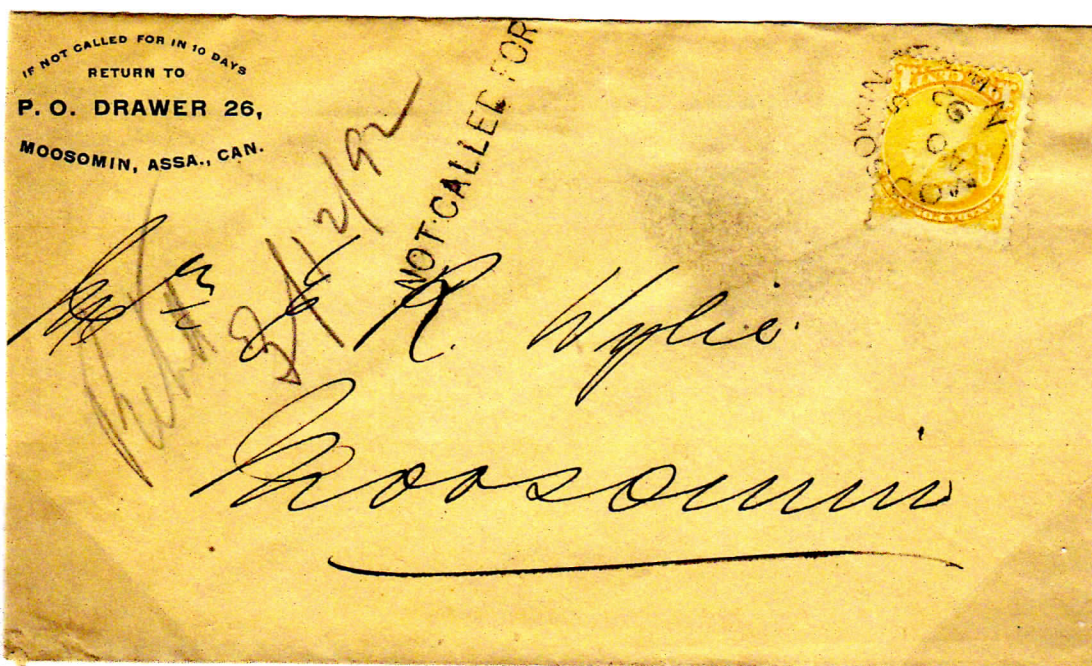 IF NOT CALLED FOR IN 10 DAYS
RETURN TO
P. O. DRAWER 26,
MOOSOMIN, ASSA., CAN.
NOT CALLED FOR
2/12/92
R. Wylie
Moosomin